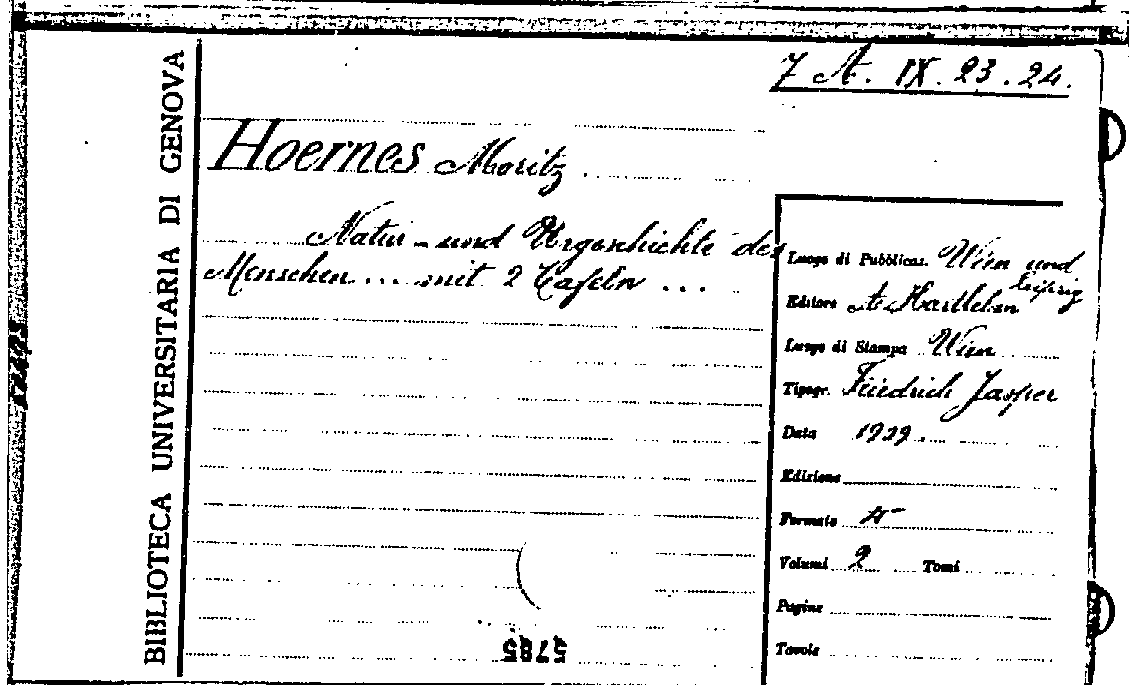 7 A. IX. 23. 24.
BIBLIOTECA UNIVERSITARIA DI GENOVA
Hoernes Moritz
Natur - und Urgeschichte des
Menschen ... mit 2 Tafeln ...
Luogo di Pubblicaz. Wien und
Leipzig
Editore A. Hartleben
Luogo di Stampa Wien
Tipogr. Friedrich Jasper
Data 1909.
Edizione
Formato
Volumi 2 Tomi
Pagine
Tavole